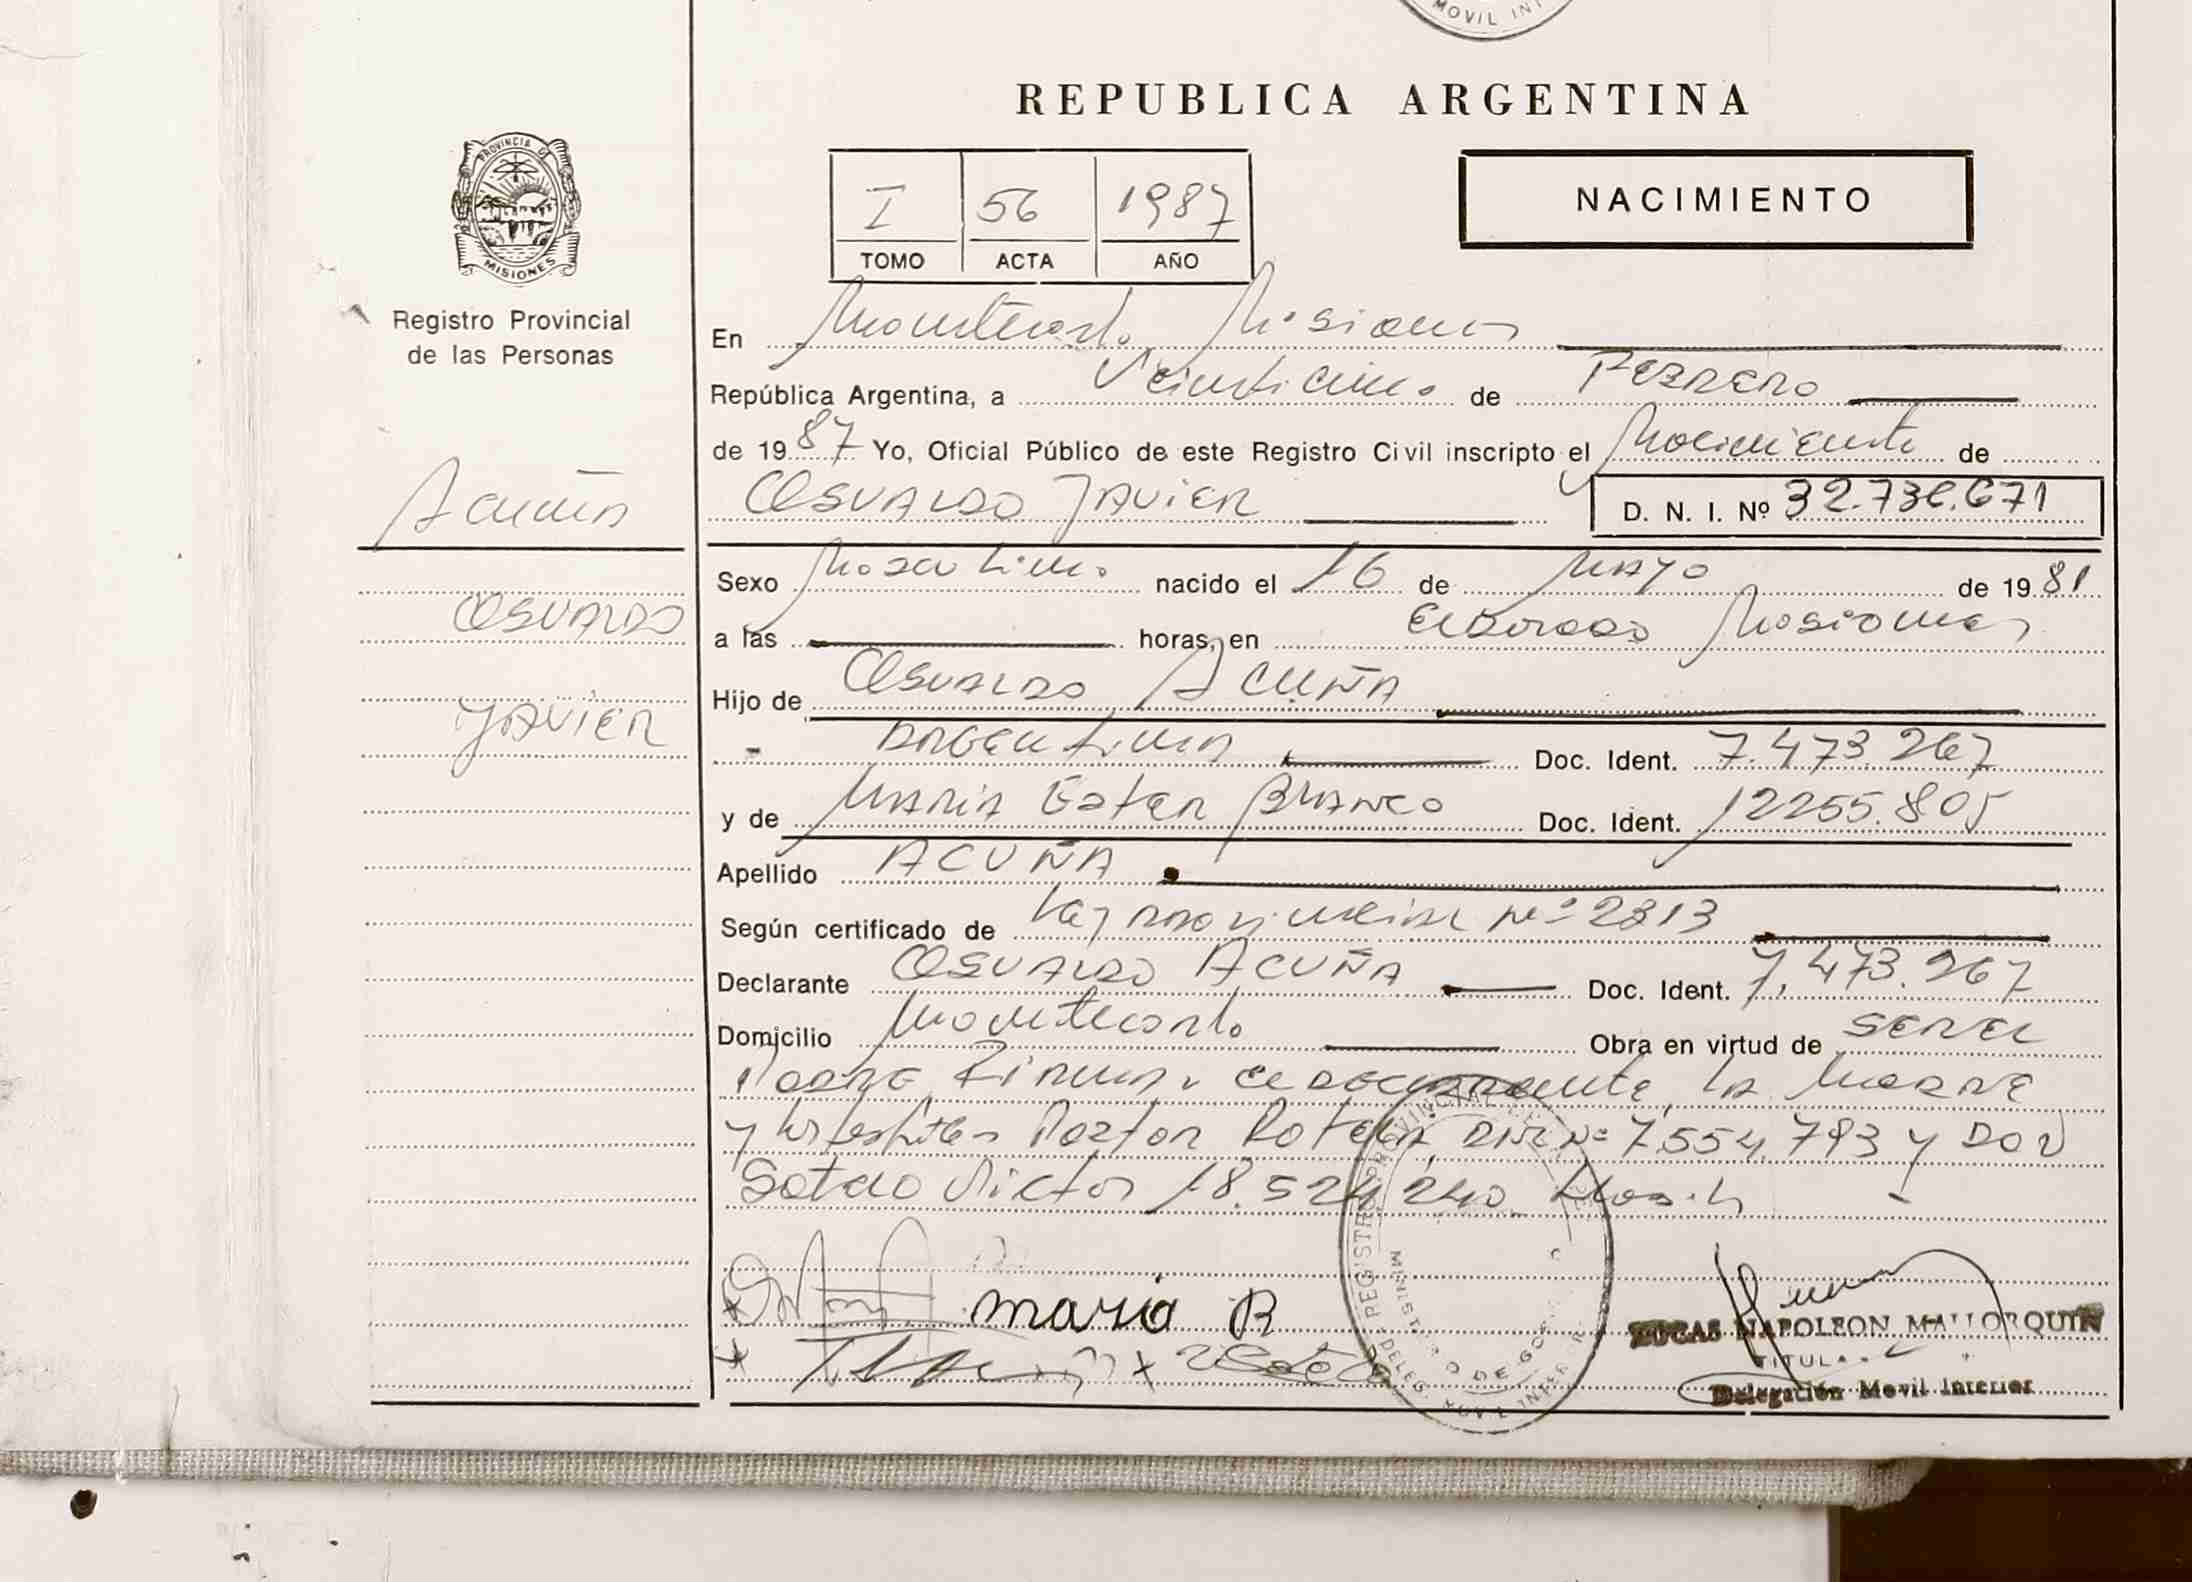 MOVIL INT
REPUBLICA ARGENTINA
PROVINCIA D
MISIONES
Registro Provincial
de las Personas
I 56 1987
TOMO ACTA AÑO
NACIMIENTO
En Montecarlo Misiones
República Argentina, a Veinticinco de FEBRERO
de 1987 Yo, Oficial Público de este Registro Civil inscripto el Nacimiento de
OSVALDO JAVIER D. N. I. Nº 32.736.671
Acuña
OSVALDO
JAVIER
Sexo Masculino nacido el 16 de MAYO de 1981
a las horas, en Eldorado Misiones
Hijo de OSVALDO ACUÑA
ARGENTINA Doc. Ident. 7.473.267
y de MARIA Ester BRANCO Doc. Ident. 12255.805
Apellido ACUÑA
Según certificado de Ley Provincial Nº 2313
Declarante OSVALDO ACUÑA Doc. Ident. 7.473.267
Domicilio Montecarlo Obra en virtud de SER EL
PADRE Firman el Declarante, la Madre
y los testigos Nº 7.554.793 y
Sotelo Victor 18.524.240
maria B
REGISTRO PROVINCIAL
MINISTERIO DE GO
LUCAS NAPOLEON MALLORQUIN
TITULA
Delegación Movil Interior